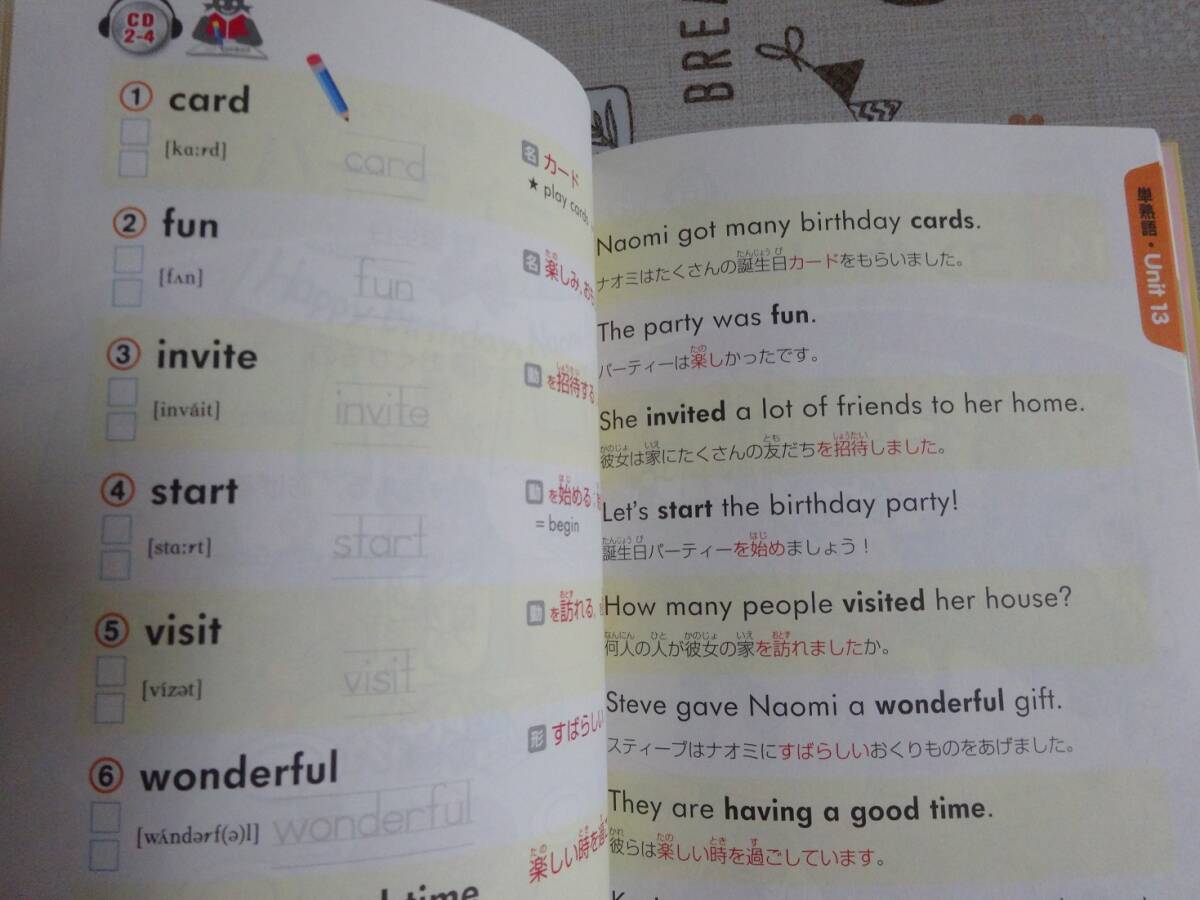 BRE
CD
2-4
1 card
[kɑːrd]
card
名 カード
★ play cards
2 fun
[fʌn]
fun
たの
名 楽しみ、
3 invite
[inváit]
invite
しょうたい
動 を招待する
4 start
[stɑːrt]
start
はじ
動 を始める
= begin
5 visit
[vízət]
visit
おとず
動 を訪れる、
6 wonderful
[wʌ́ndərf(ə)l]
wonderful
形 すばらしい
たの とき
楽しい時を
time
単熟語・Unit 13
Naomi got many birthday cards.
たんじょう び
ナオミはたくさんの誕生日カードをもらいました。
The party was fun.
たの
パーティーは楽しかったです。
She invited a lot of friends to her home.
かのじょ いえ とも しょうたい
彼女は家にたくさんの友だちを招待しました。
Let's start the birthday party!
たんじょう び はじ
誕生日パーティーを始めましょう！
How many people visited her house?
なんにん ひと かのじょ いえ おとず
何人の人が彼女の家を訪れましたか。
Steve gave Naomi a wonderful gift.
スティーブはナオミにすばらしいおくりものをあげました。
They are having a good time.
かれ たの とき す
彼らは楽しい時を過ごしています。